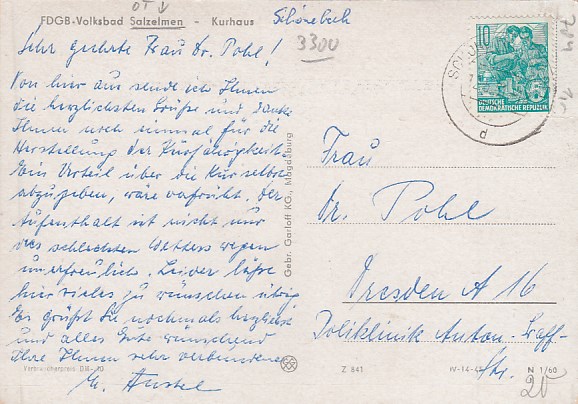 OT ↓
FDGB-Volksbad Salzelmen - Kurhaus Schönebeck
3300
Sehr geehrte Frau Dr. Pohl!
Von hier aus sende ich Ihnen
die herzlichsten Grüße und danke
Ihnen noch einmal für die
Herstellung der Kurfähigkeit.
Ein Urteil über die Kur selbst
abzugeben, wäre verfrüht. Der
Aufenthalt ist nicht nur
des schlechten Wetters wegen
unerfreulich. Leider läßt
hier vieles zu wünschen übrig
Es grüßt Sie nochmals herzlichst
und alles Gute wünschend
Ihre Ihnen sehr verbundene
10
DEUTSCHE
DEMOKRATISCHE REPUBLIK
d
Gebr. Garloff KG., Magdeburg
Frau
Dr. Pohl
Dresden A 16
Poliklinik Anton-Graff-
Str.
Z 841
N 1/60
20